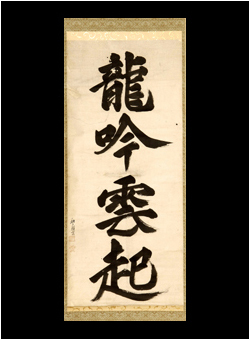 龍吟雲起